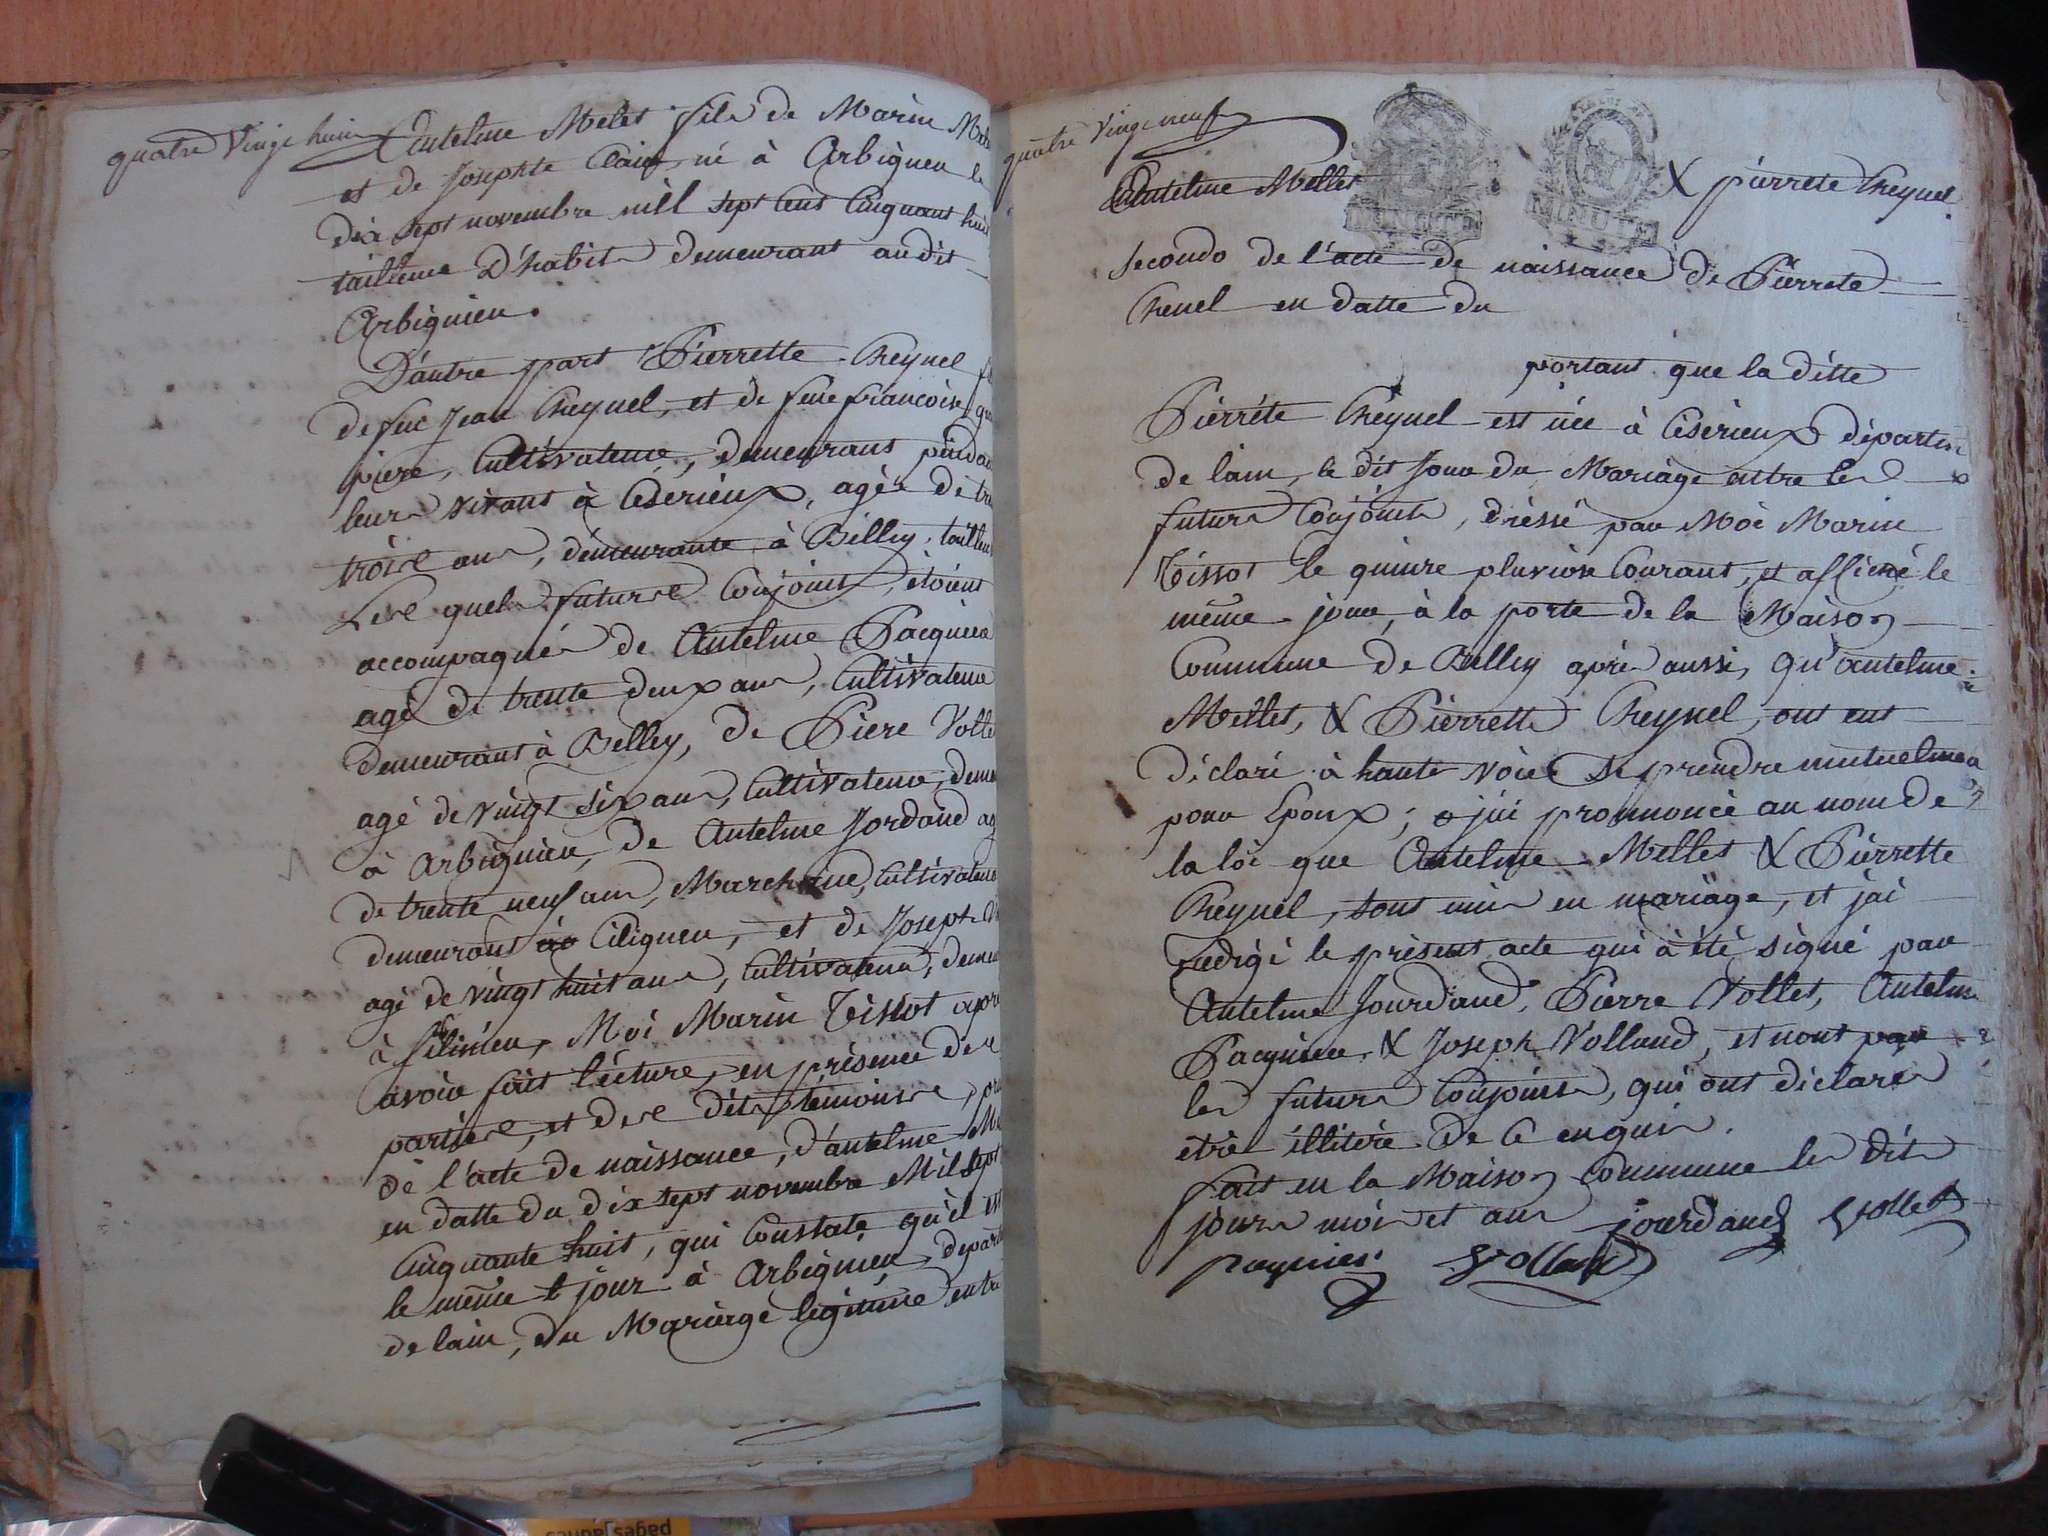 quatre vingt huit
Antelme Melet fils de Marin
et de Josephte Clair né à Arbigneu le
dix sept novembre mill sept Cens Cinquant huit
tailleur D'habits demeurant audit
Arbignieu.
D'autre part Pierrette Cheynel
de fue Jean Cheynel, et de feue francoise
piere, Cultivateur, demeurans pendan
leurs vivans à Césérieux, agée de
trois ans, démeurante à Belley,
Les quels futurs Conjoins, étoient
accompagnés de Antelme Pacquier
agé de trente deux ans, Cultivateur
demeurant à Belley, de Piere Vollet
agé de vingt six ans, Cultivateur,
à Arbignieu, de Antelme Jordand
de trente neuf ans, Marchand, Cultivateur
demeurant Cilignieu, et de Joseph
agé de vingt huit ans, Cultivateur,
à Moi Marin Tissot
avoir fait lécture, en présence des
partiés, et des dits témoins,
de l'acte de naissance, d'antelme
en datte du dix sept novembre Mil Sept
Cinquante huit, qui Constate, qu'il est
le même jour à Arbignieu
de lain, du Mariage légitime entre
quatre vingt neuf
Antelme Mellet
MINUTE
MINUTE
& pierrete Cheynel.
secondo de l'acte de naissance de Pierrete
Chenel en datte du
portant que la ditte
Pierréte Cheynel est née à Césérieux départem
de lain, le dit Jour du Mariage entre les
futurs Conjoints, dréssé par Moi Marin
Tissot le quinze pluviose Courant, et affiché le
même jour, à la porte de la Maison
Commune de Belley après aussi, qu'antelme
Mellet, & Pierrette Cheynel, ont eut
déclaré à haute voix Se prendre mutuelmen
pour Epoux; jai prononcé au nom de
la loi que Antelme Mellet & Pierrette
Cheynel, sont unis en mariage, et jai
redigé le présent acte qui à été signé par
Antelme Jourdand, Pierre Vollet, Antelme
Pacquier, & Joseph Volland, et nont pas
les futurs Conjoints, qui ont diclaré
etre illitéré De Ce enquis.
fait en la Maison Commune les dits
jours mois et ans jourdand Vollet
paquier Volland